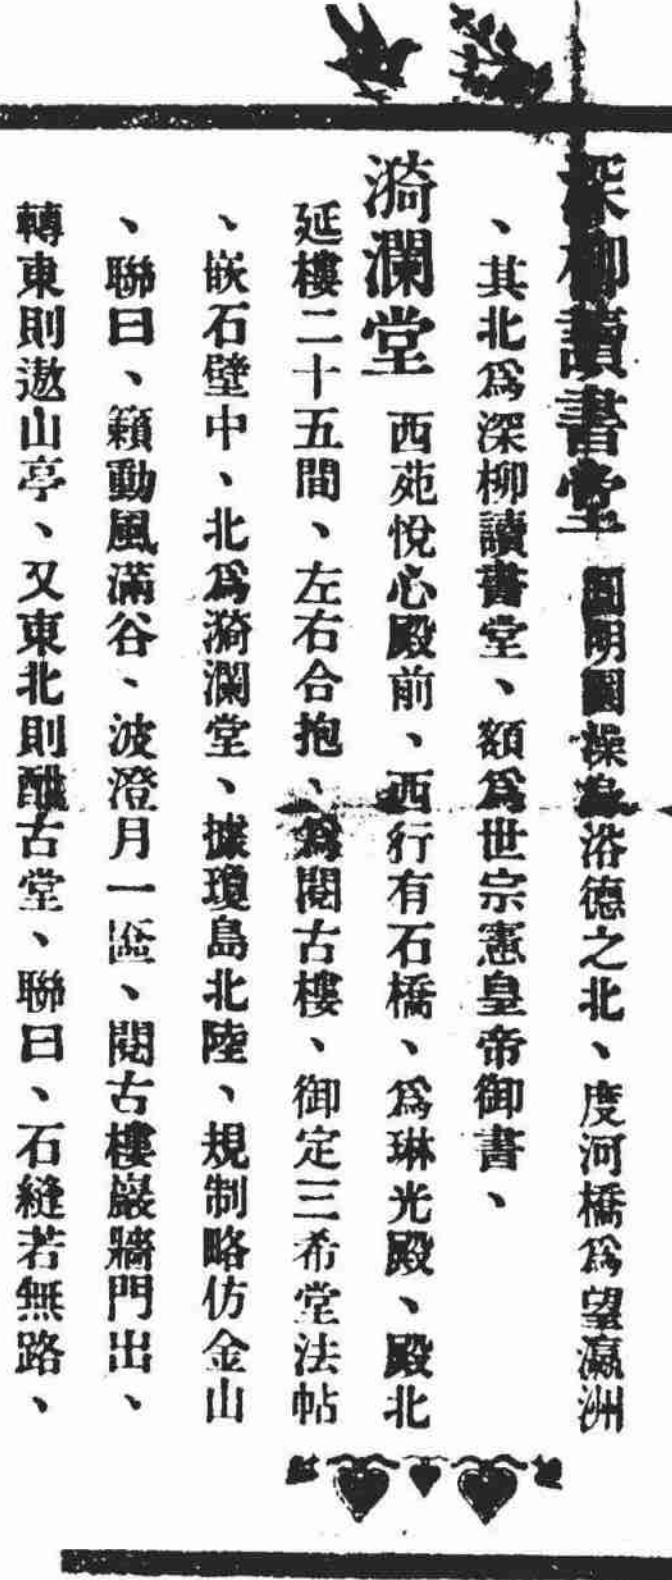 深柳讀書堂 圓明園澡身浴德之北、度河橋爲望瀛洲
、其北爲深柳讀書堂、額爲世宗憲皇帝御書、
漪瀾堂 西苑悅心殿前、西行有石橋、爲琳光殿、殿北
延樓二十五間、左右合抱、爲閱古樓、御定三希堂法帖
、嵌石壁中、北爲漪瀾堂、據瓊島北陸、規制略仿金山
、聯曰、籟動風滿谷、波澄月一匳、閱古樓巖牆門出、
轉東則遨山亭、又東北則酣古堂、聯曰、石縫若無路、